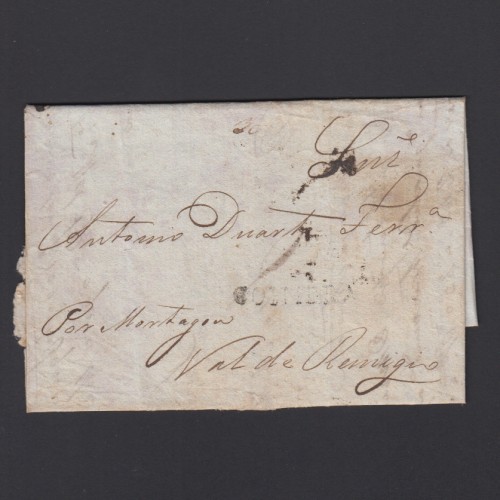 Senr
Antonio Duarte Ferra
COIMBRA
Por Mortagoa
Val de Remigio